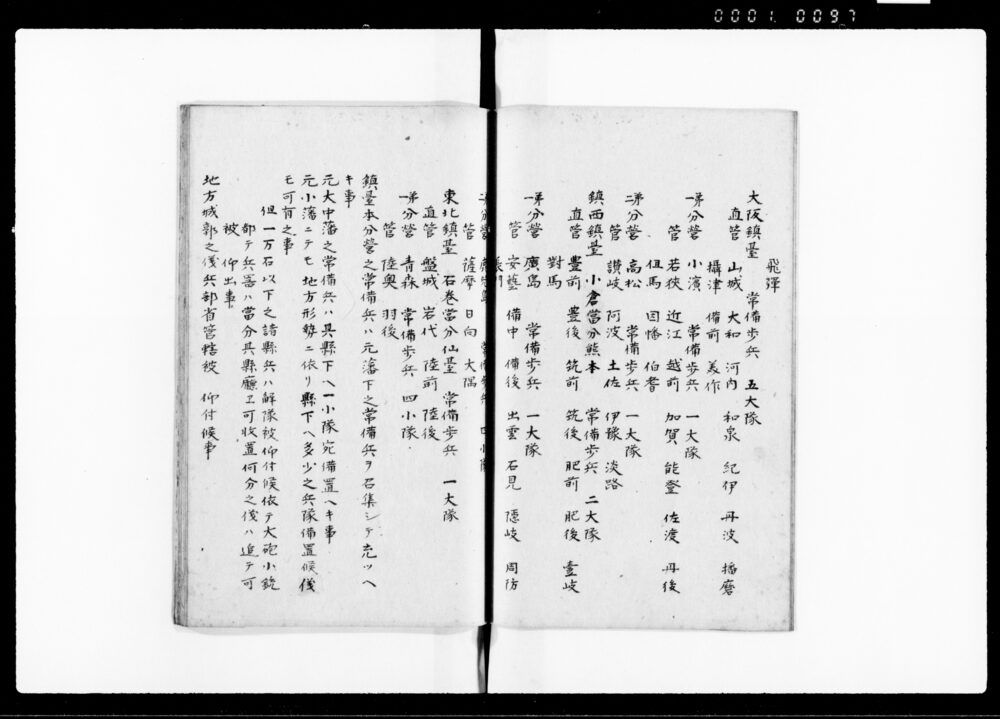 0001 0097
飛彈
大阪鎮臺 常備歩兵 五大隊
直管 山城 大和 河内 和泉 紀伊 丹波 播磨
攝津 備前 美作
第一分營 小濱 常備歩兵 一大隊
管 若狹 近江 越前 加賀 能登 佐渡 丹後
但馬 因幡 伯耆
第二分營 高松 常備歩兵 一大隊
管 讃岐 阿波 土佐 伊豫 淡路
鎮西鎮臺 小倉當分熊本 常備歩兵 二大隊
直管 豊前 豊後 筑前 筑後 肥前 肥後 壹岐
對馬
第一分營 廣島 常備歩兵 一大隊
管 安藝 備中 備後 出雲 石見 隱岐 周防
長門
第二分營 鹿児島 常備歩兵 四小隊
管 薩摩 日向 大隅
東北鎮臺 石巻當分仙臺 常備歩兵 一大隊
直管 盤城 岩代 陸前 陸後
第一分營 青森 常備歩兵 四小隊
管 陸奥 羽後
鎮臺本分營之常備兵ハ元藩下之常備兵ヲ召集シテ充ツヘ
キ事
元大中藩之常備兵ハ其縣下ヘ一小隊宛備置ヘキ事
元小藩ニテモ地方形勢ニ依リ縣下ヘ多少之兵隊備置候儀
モ可有之事
但一万石以下之諸縣兵ハ解隊被仰付候依テ大砲小銃
都テ兵器ハ當分其縣廳ヱ可收置何分之儀ハ追テ可
被 仰出事
地方城郭之儀兵部省管轄被 仰付候事